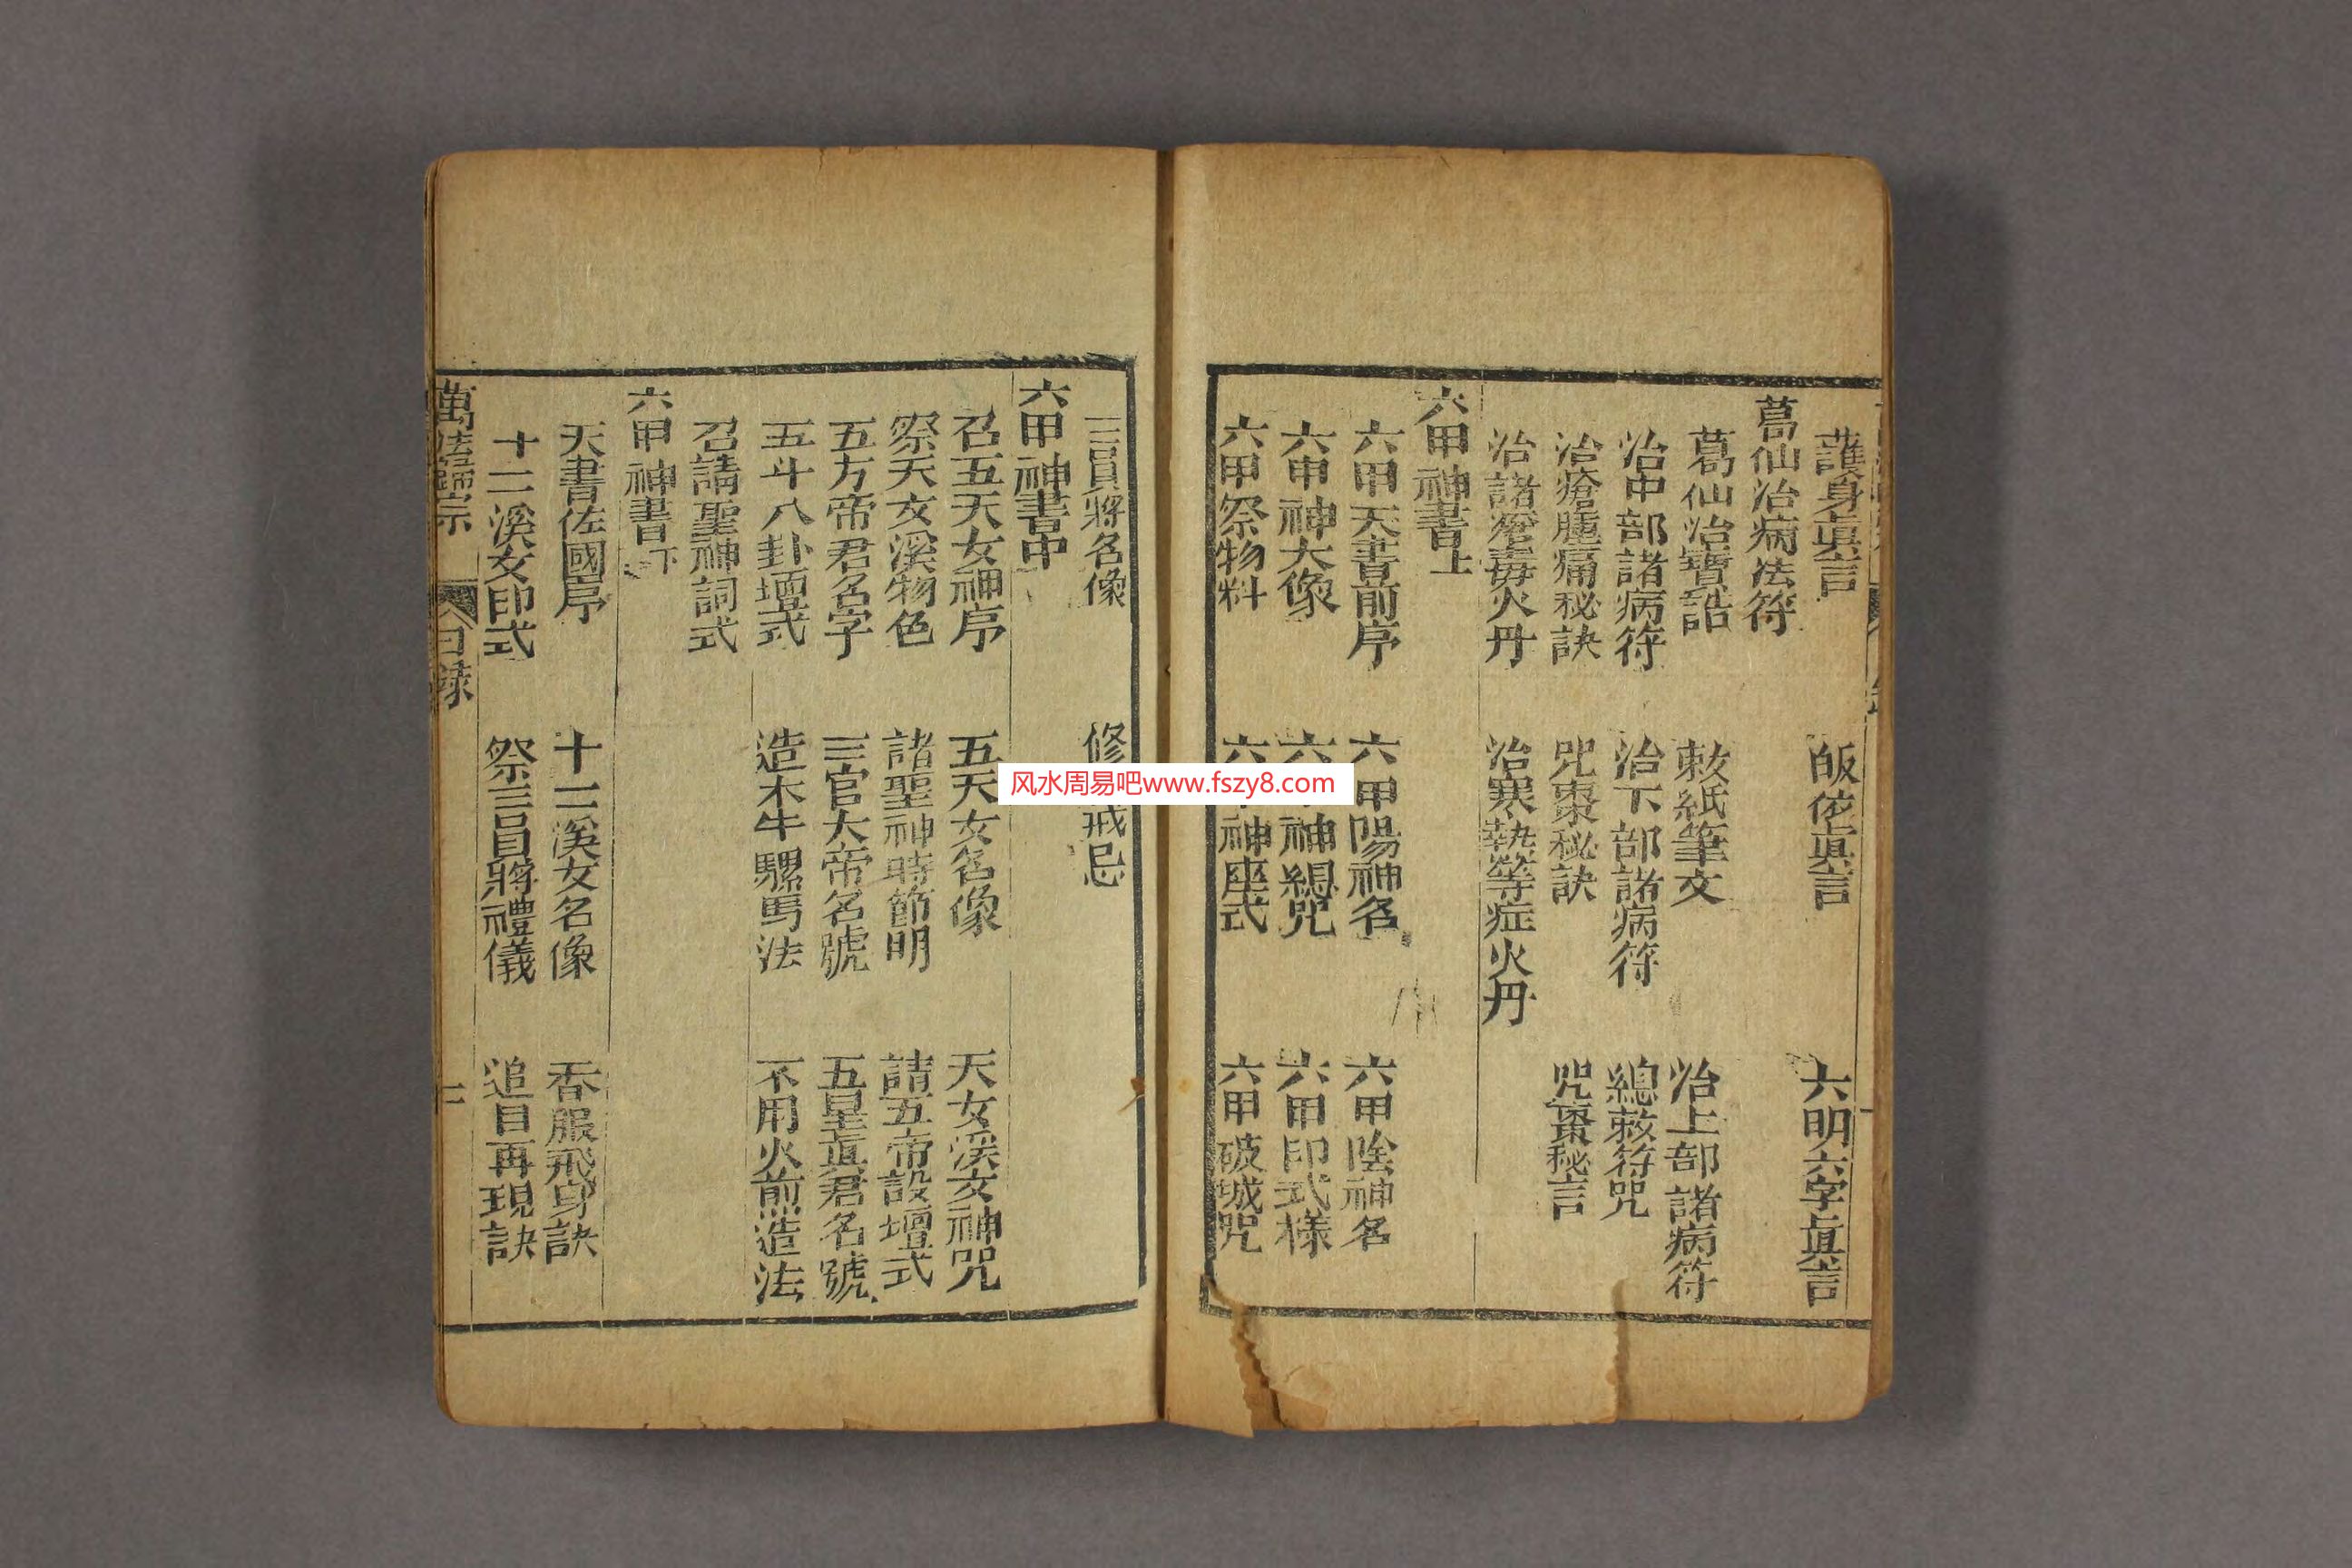 護身眞言 皈依眞言 六明六字眞言
葛仙治病法符
葛仙治寶誥 敕紙筆文 治上部諸病符
治中部諸病符 治下部諸病符 總敕符咒
治瘡腫痛秘訣 咒棗秘訣 咒棗秘言
治諸瘡毒火丹 治寒熱等症火丹
六甲神書上
六甲天書前序 六甲陽神名 六甲陰神名
六甲神大像 六甲神總咒 六甲印式樣
六甲祭物料 六甲神座式 六甲破城咒
三員將名像 修 戒忌
六甲神書中
召五天女神序 五天女名像 天女溪女神咒
祭天女溪物色 諸聖神時節明 請五帝設壇式
五方帝君名字 三官大帝名號 五星眞君名號
五斗八卦壇式 造木牛騾馬法 不用火煎造法
召請聖神詞式
六甲神書下
天書佐國序 十二溪女名像 香服飛身訣
十二溪女印式 祭三員將禮儀 追目再現訣
萬法歸宗 目錄 二
风水周易吧www.fszy8.com